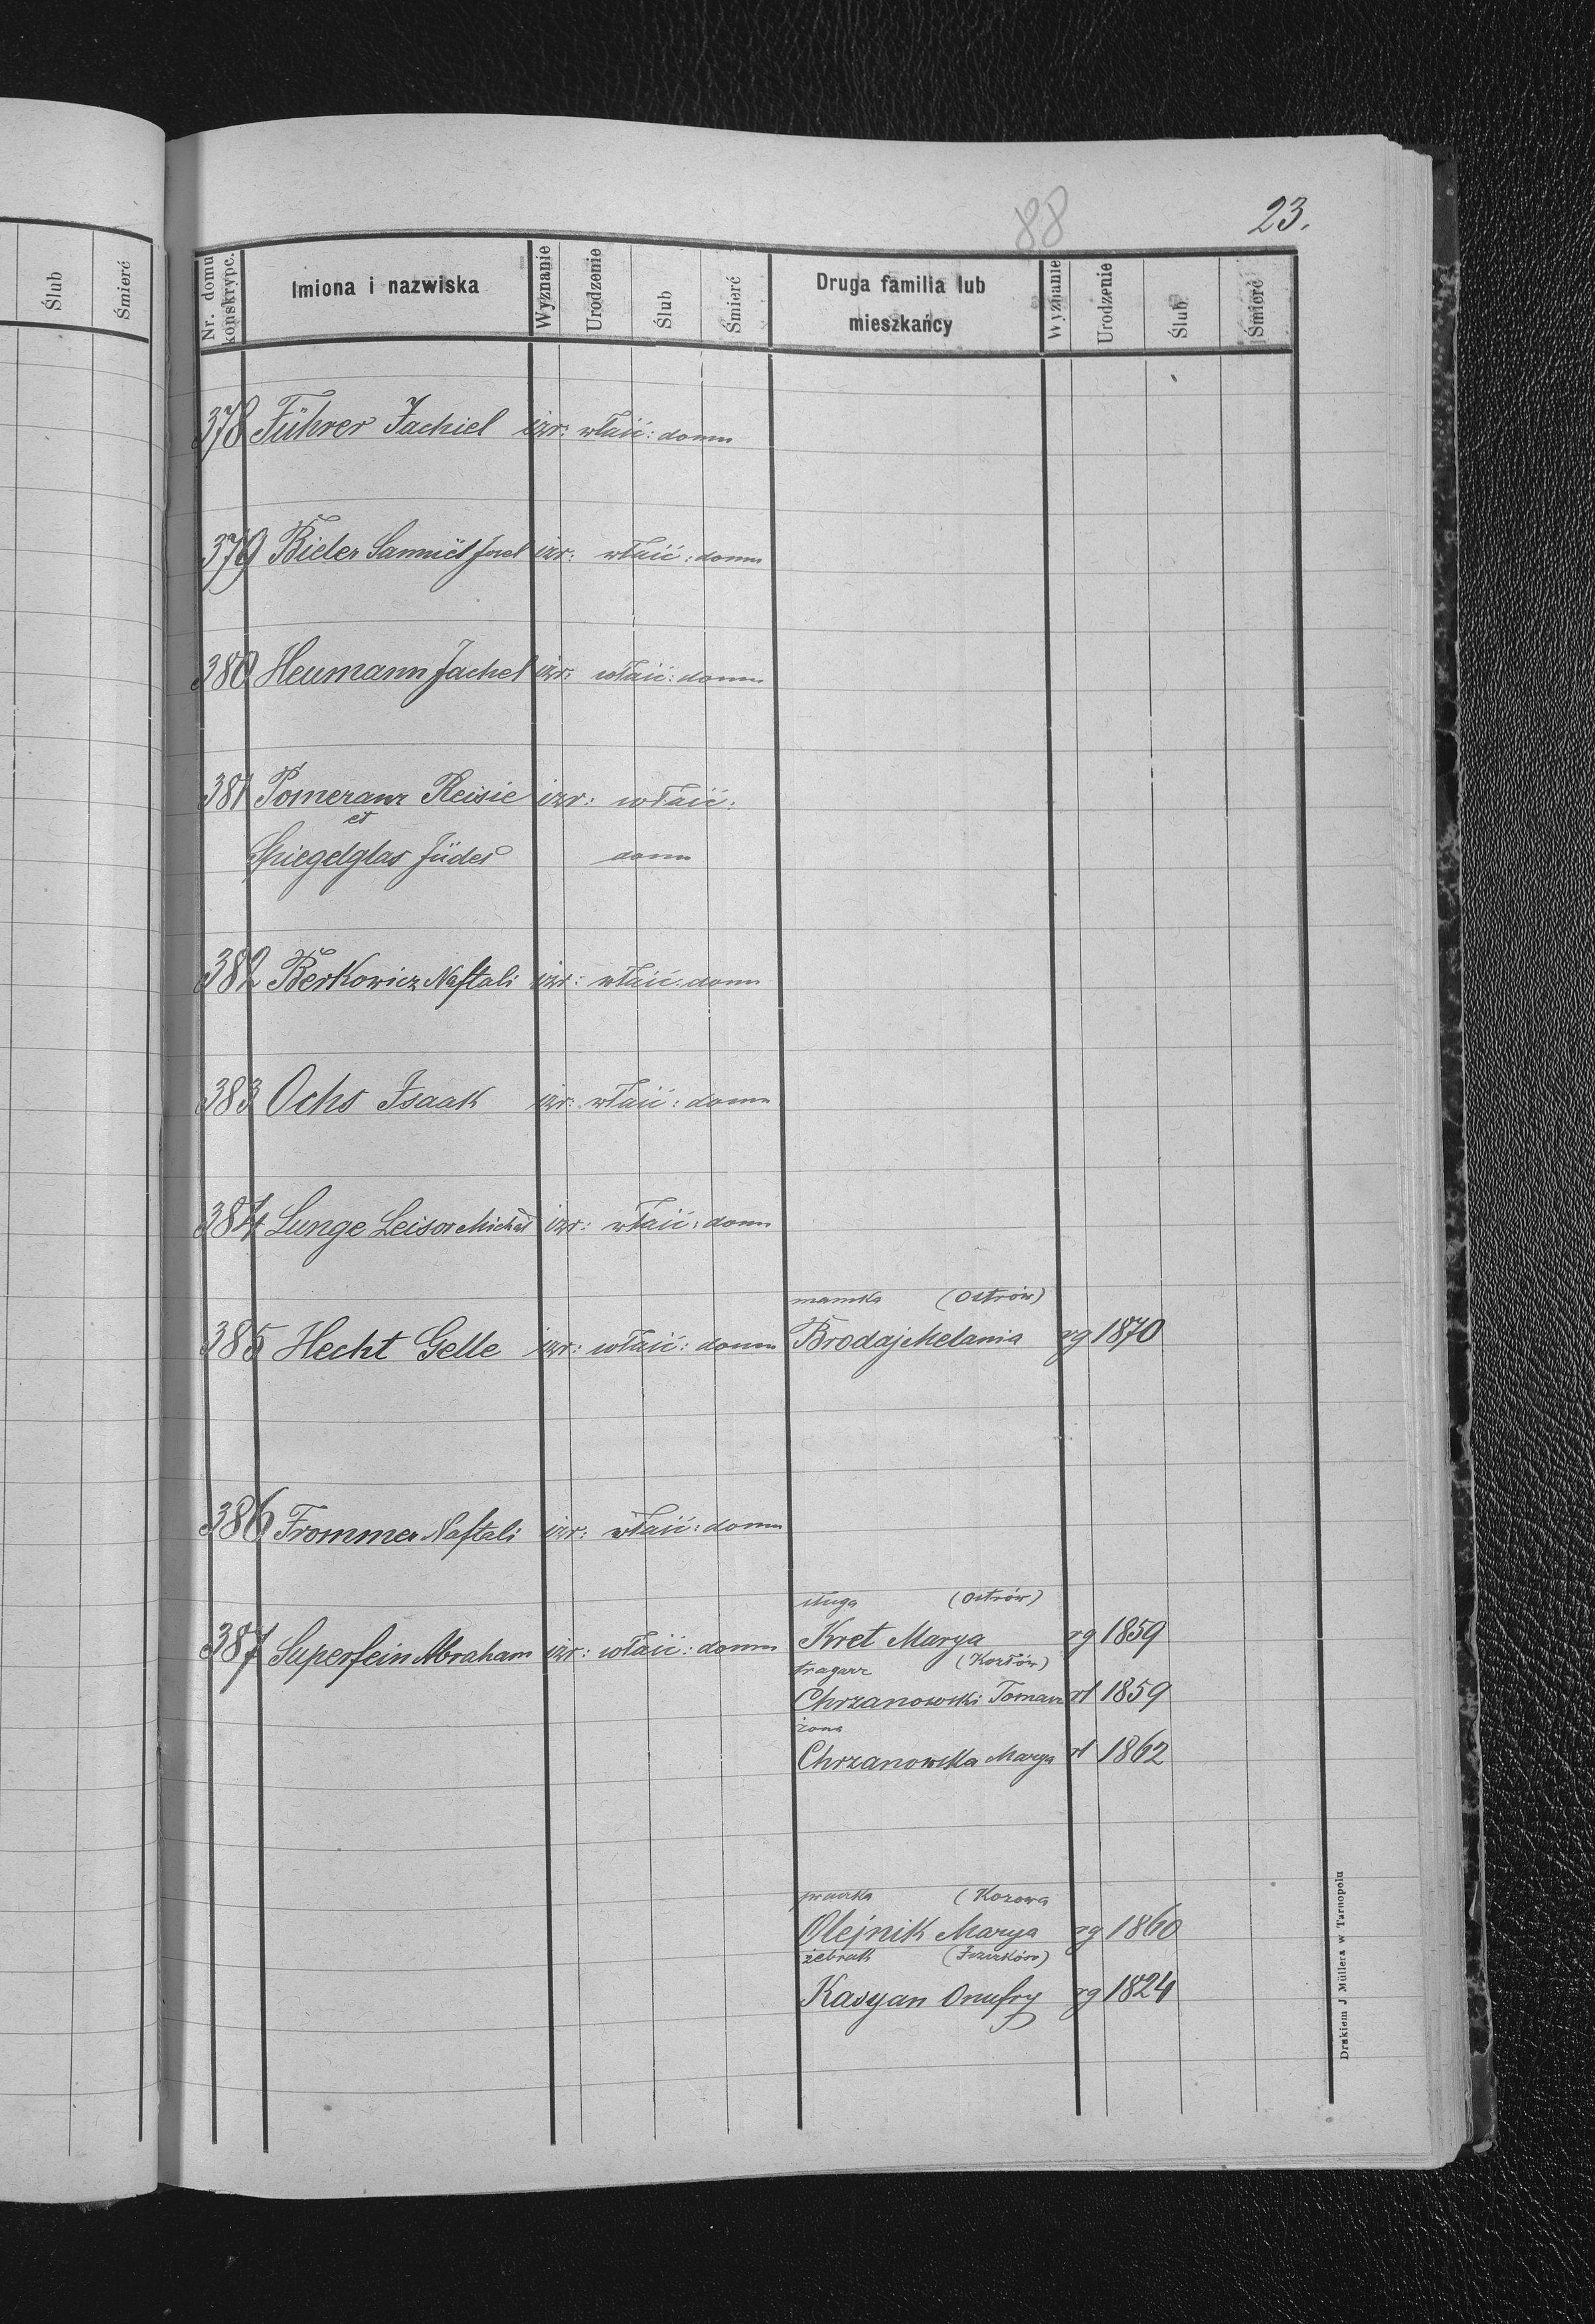 Ślub
Śmierć
88
23.
Nr. domu konskrypc.
Imiona i nazwiska
Wyznanie
Urodzenie
Ślub
Śmierć
Druga familia lub
mieszkańcy
Wyznanie
Urodzenie
Ślub
Śmierć
378 Führer Jachiel izr: właść: domu
379 Bieler Samuel Josel izr: właść: domu
380 Heumann Jachel izr: właść: domu
381 Pomeranz Reisie izr: właść:
et
Spiegelglas Jüdes domu
382 Berkowicz Naftali izr: właść: domu
383 Ochs Isaak izr: właść: domu
384 Lunge Leisor Michel izr: właść: domu
mamka (Ostrów)
385 Hecht Gelle izr: właść: domu Brodaj Melania rg 1870
386 Frommer Naftali izr: właść: domu
sługa (Ostrów)
387 Superfein Abraham izr: właść: domu Kret Marya rg 1859
tragarz (Kozłów)
Chrzanowski Tomasz rł 1859
żona
Chrzanowska Marya rł 1862
praczka (Kozowa
Olejnik Marya rg 1860
żebrak
Kasyan Onufry rg 1824
Drukiem J Müllera w Tarnopolu